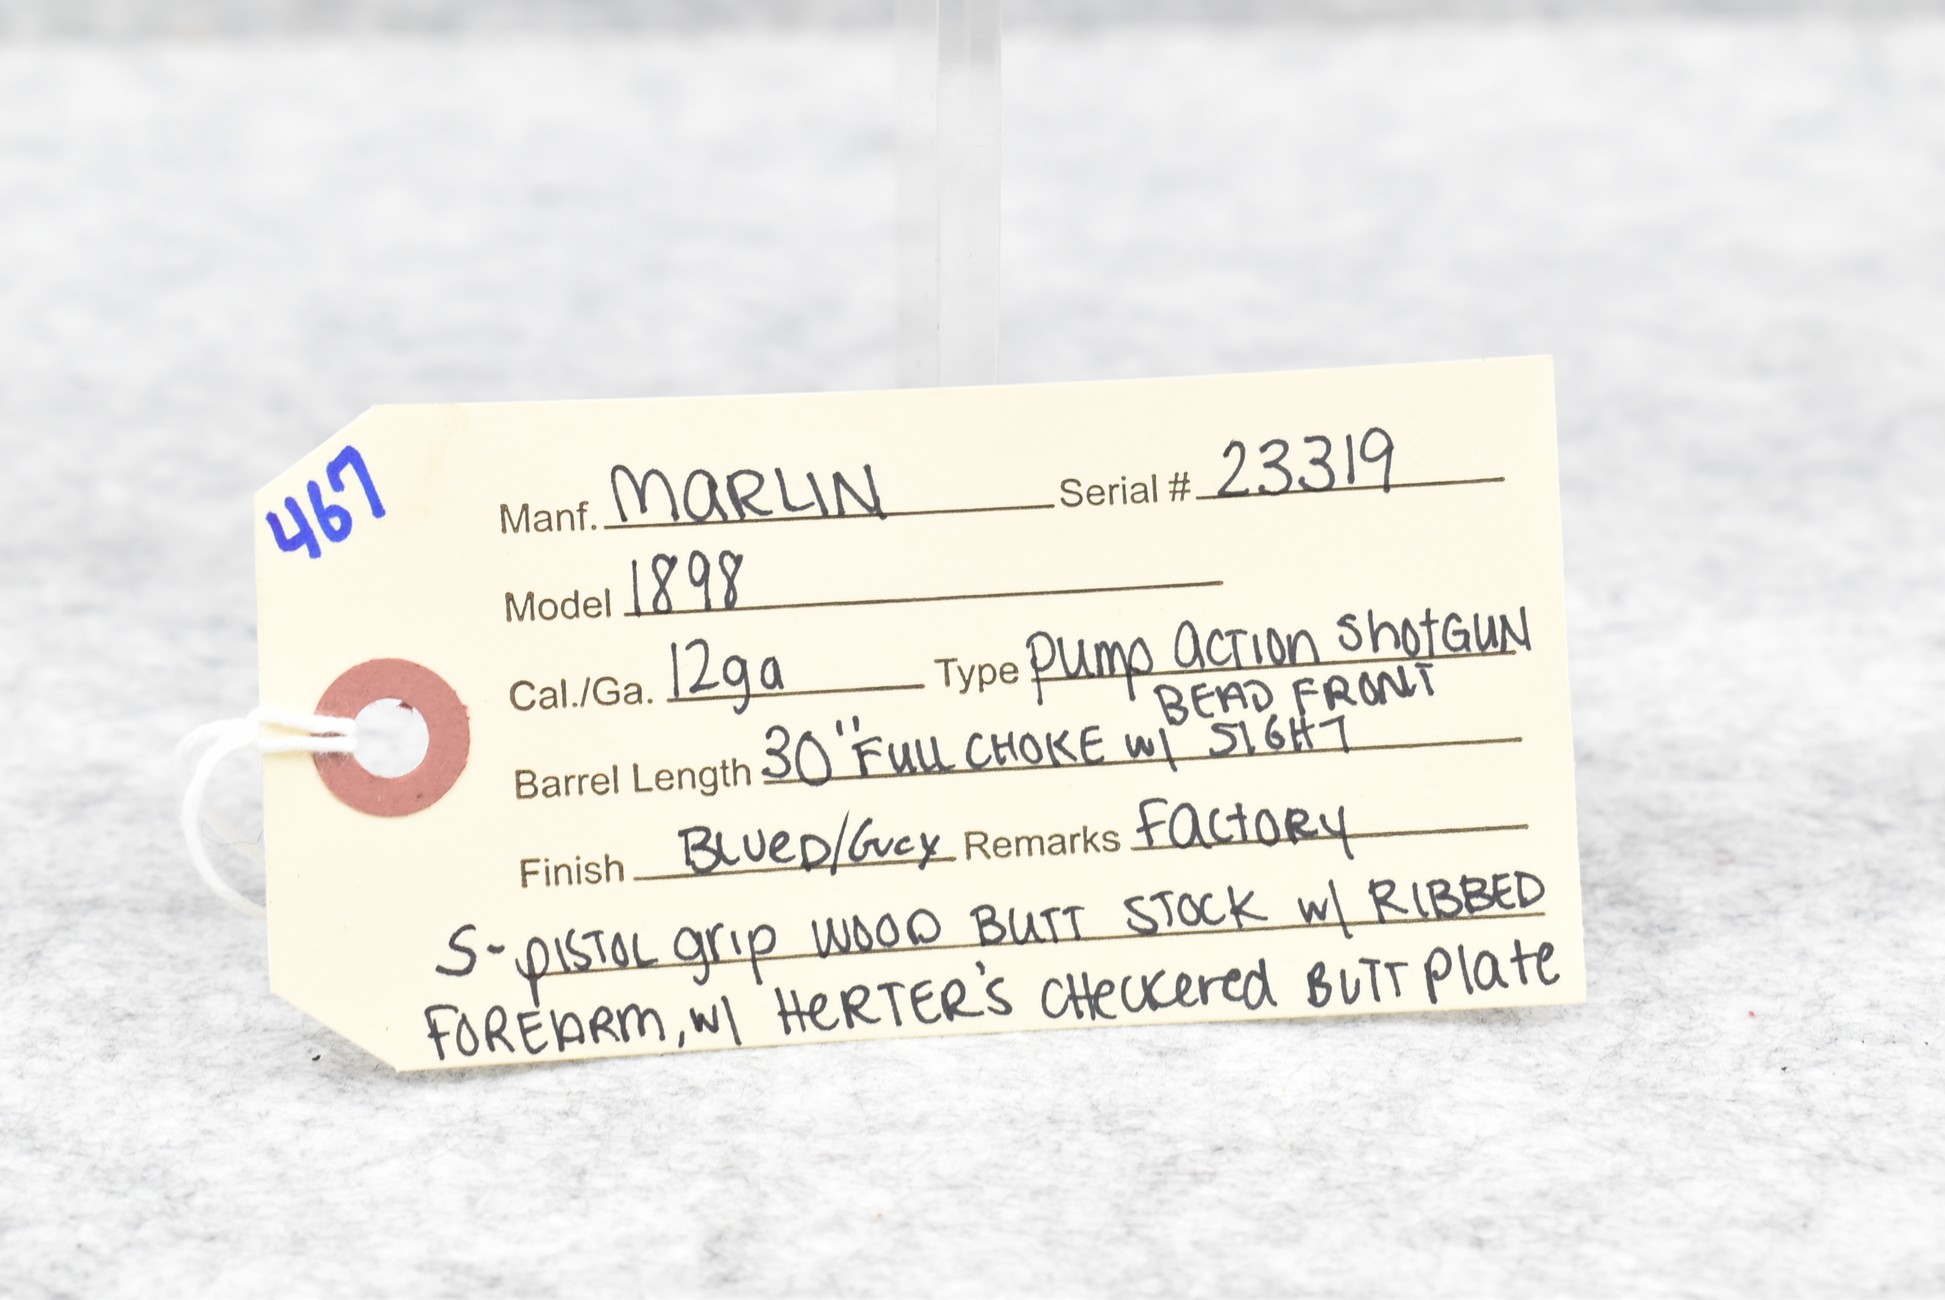 467
Manf. MARLIN Serial # 23319
Model 1898
Cal./Ga. 12ga Type Pump Action Shotgun
Barrel Length 30" Full CHOKE w/ BEAD FRONT SIGHT
Finish Blued/Grey Remarks Factory
S-PISTOL grip WOOD BUTT STOCK w/ RIBBED
FOREARM, w/ HERTER'S CHECKERED BUTT Plate